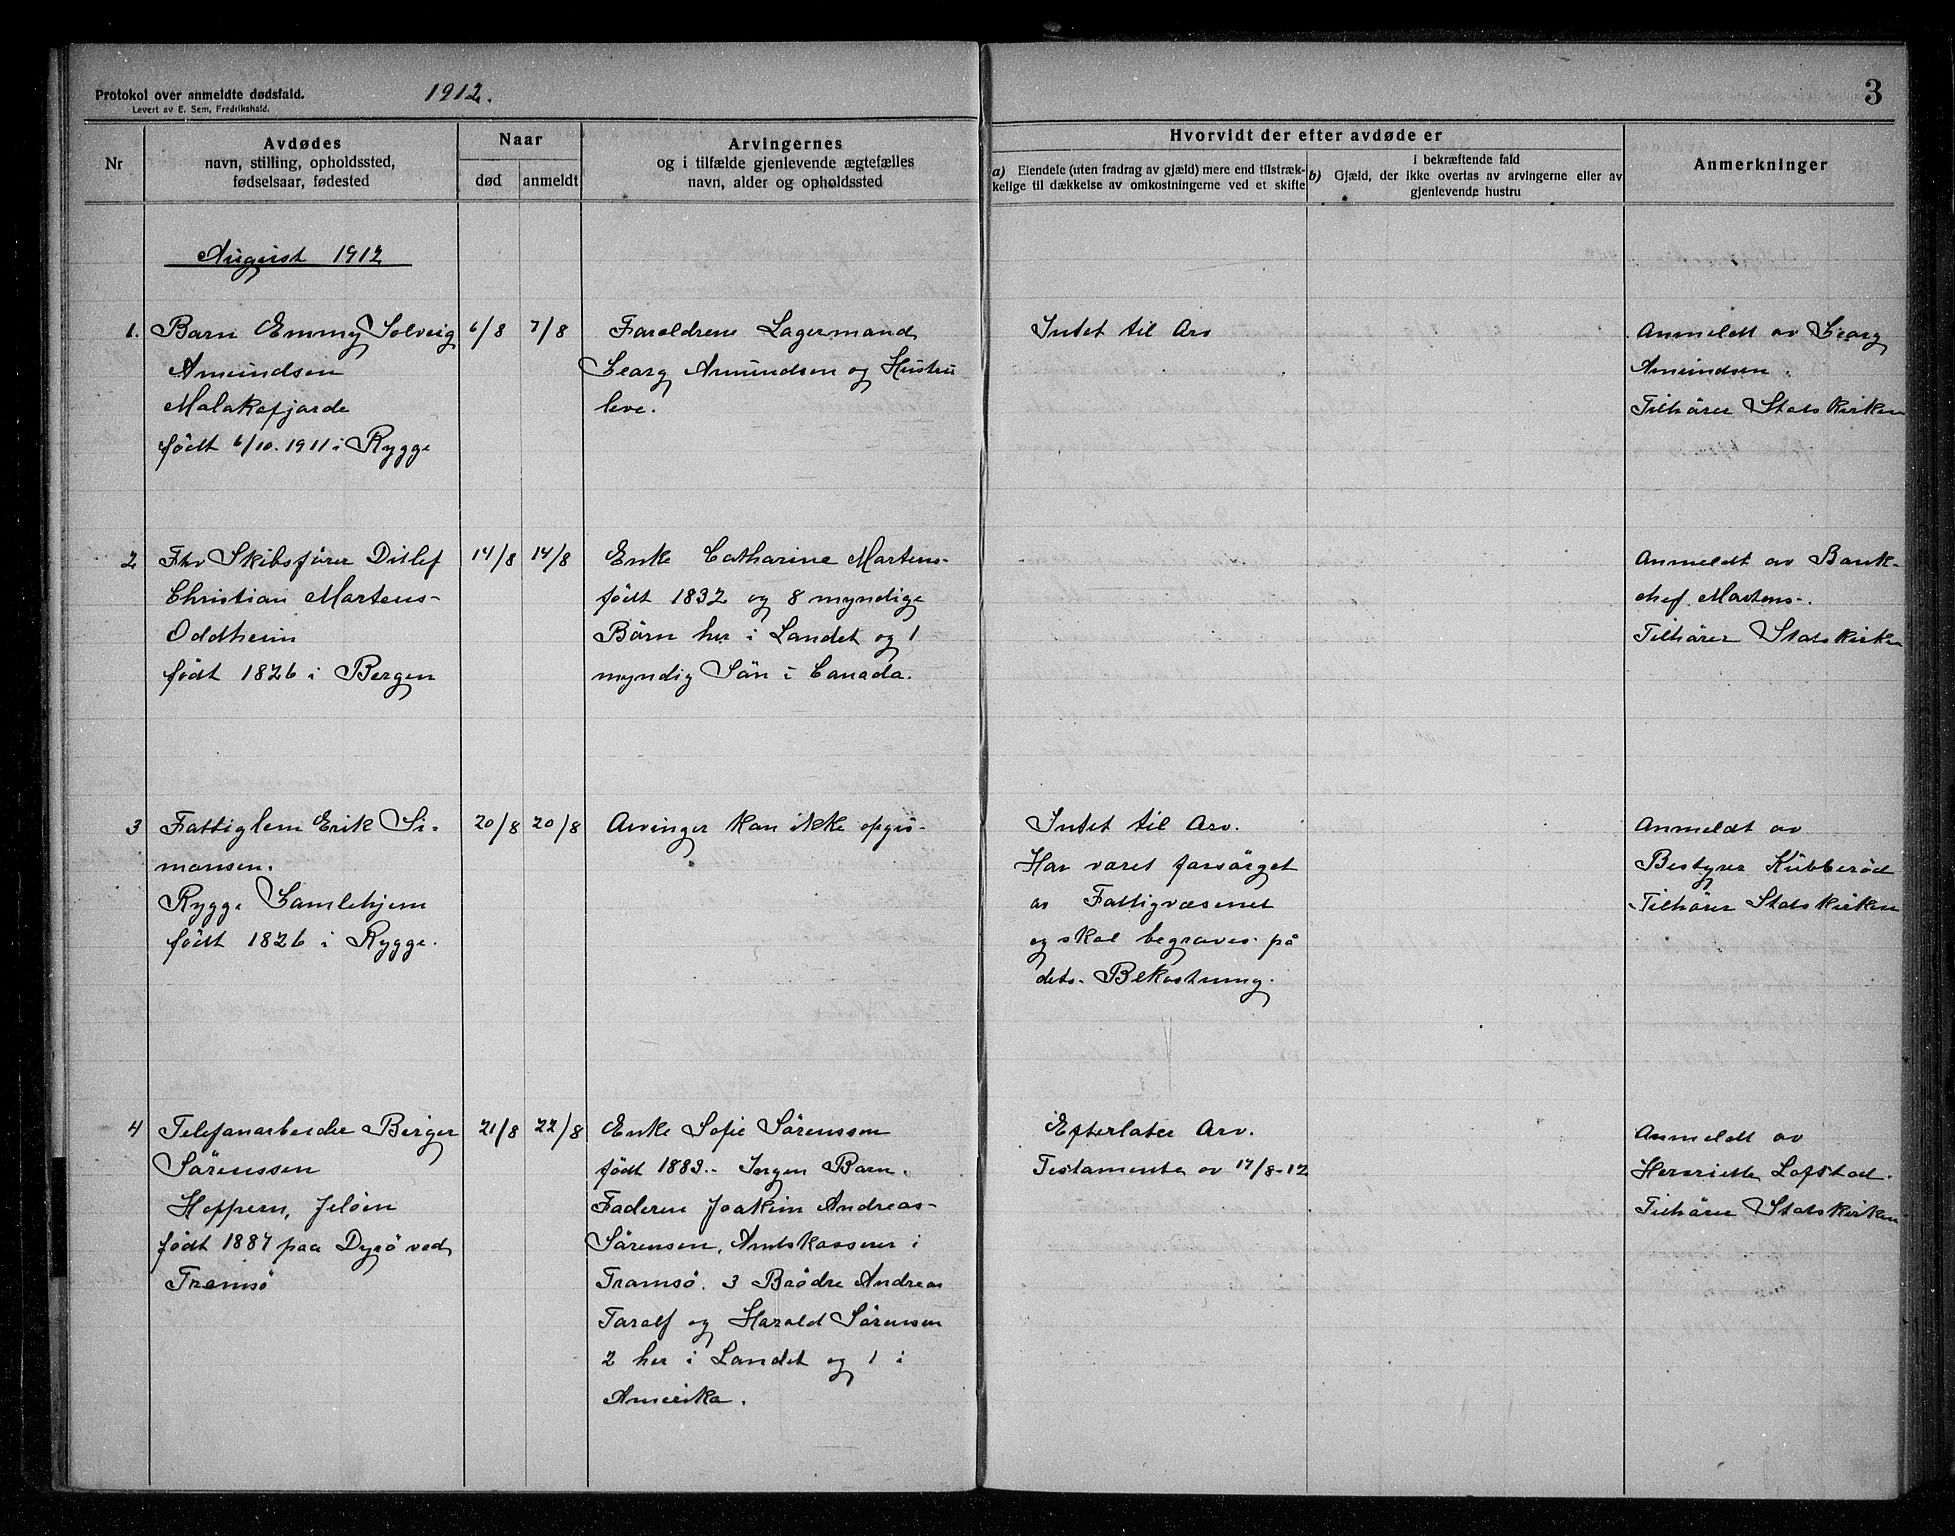 Protokol over anmeldte dødsfald.
Levert av E. Sem, Fredrikshald.
1912.
3
Nr
Avdødes
navn, stilling, opholdssted,
fødselsaar, fødested
Naar
død
anmeldt
Arvingernes
og i tilfælde gjenlevende ægtefælles
navn, alder og opholdssted
Hvorvidt der efter avdøde er
a) Eiendele (uten fradrag av gjæld) mere end tilstræk-
kelige til dækkelse av omkostningerne ved et skifte
i bekræftende fald
b) Gjæld, der ikke overtas av arvingerne eller av
gjenlevende hustru
Anmerkninger
August 1912
1.
Barn Emmy Solveig
Amundsen
Malakofjorde
født 6/10. 1911 i Rygge
6/8
7/8
Foroldrene Lagermand
Georg Amundsen og Hustru
leve.
Intet til Arv
Anmeldt av Georg
Amundsen.
Tilhører Statskirken
2
Fhv Skibsfører Ditlef
Christian Martens-
Oddheim
født 1826 i Bergen
14/8
14/8
Enke Catharine Martens-
født 1832 og 8 myndige
Børn her i Landet og 1
myndig Søn i Canada.
Anmeldt av Bank-
chef Martens-.
Tilhører Statskirken
3
Fattiglem Erik Si-
monsen.
Rygge Gamlehjem
født 1826 i Rygge.
20/8
20/8
Arvinger kan ikke opgis-
Intet til Arv.
Har været forsørget
av Fattigvæsenet
og skal begraves på
dets- Bekostning.
Anmeldt av
Bestyrer Kubberød
Tilhører Statskirken
4
Telefonarbeider Berger
Sørenssen
Hoppern, Jeløen
født 1887 paa Dyrø ved
Tromsø
21/8
22/8
Enke Sofie Sørenssen
født 1883.- Ingen Barn.
Faderen Joakim Andreas-
Sørensen, Amtskasserer i
Tromsø. 3 Brødre Andreas
Toralf og Harald Sørensen
2 her i Landet og 1 i
Amerika.
Efterlater Arv.
Testamente av 17/8-12
Anmeldt av
Henriette Lofstad.
Tilhører Statskirken